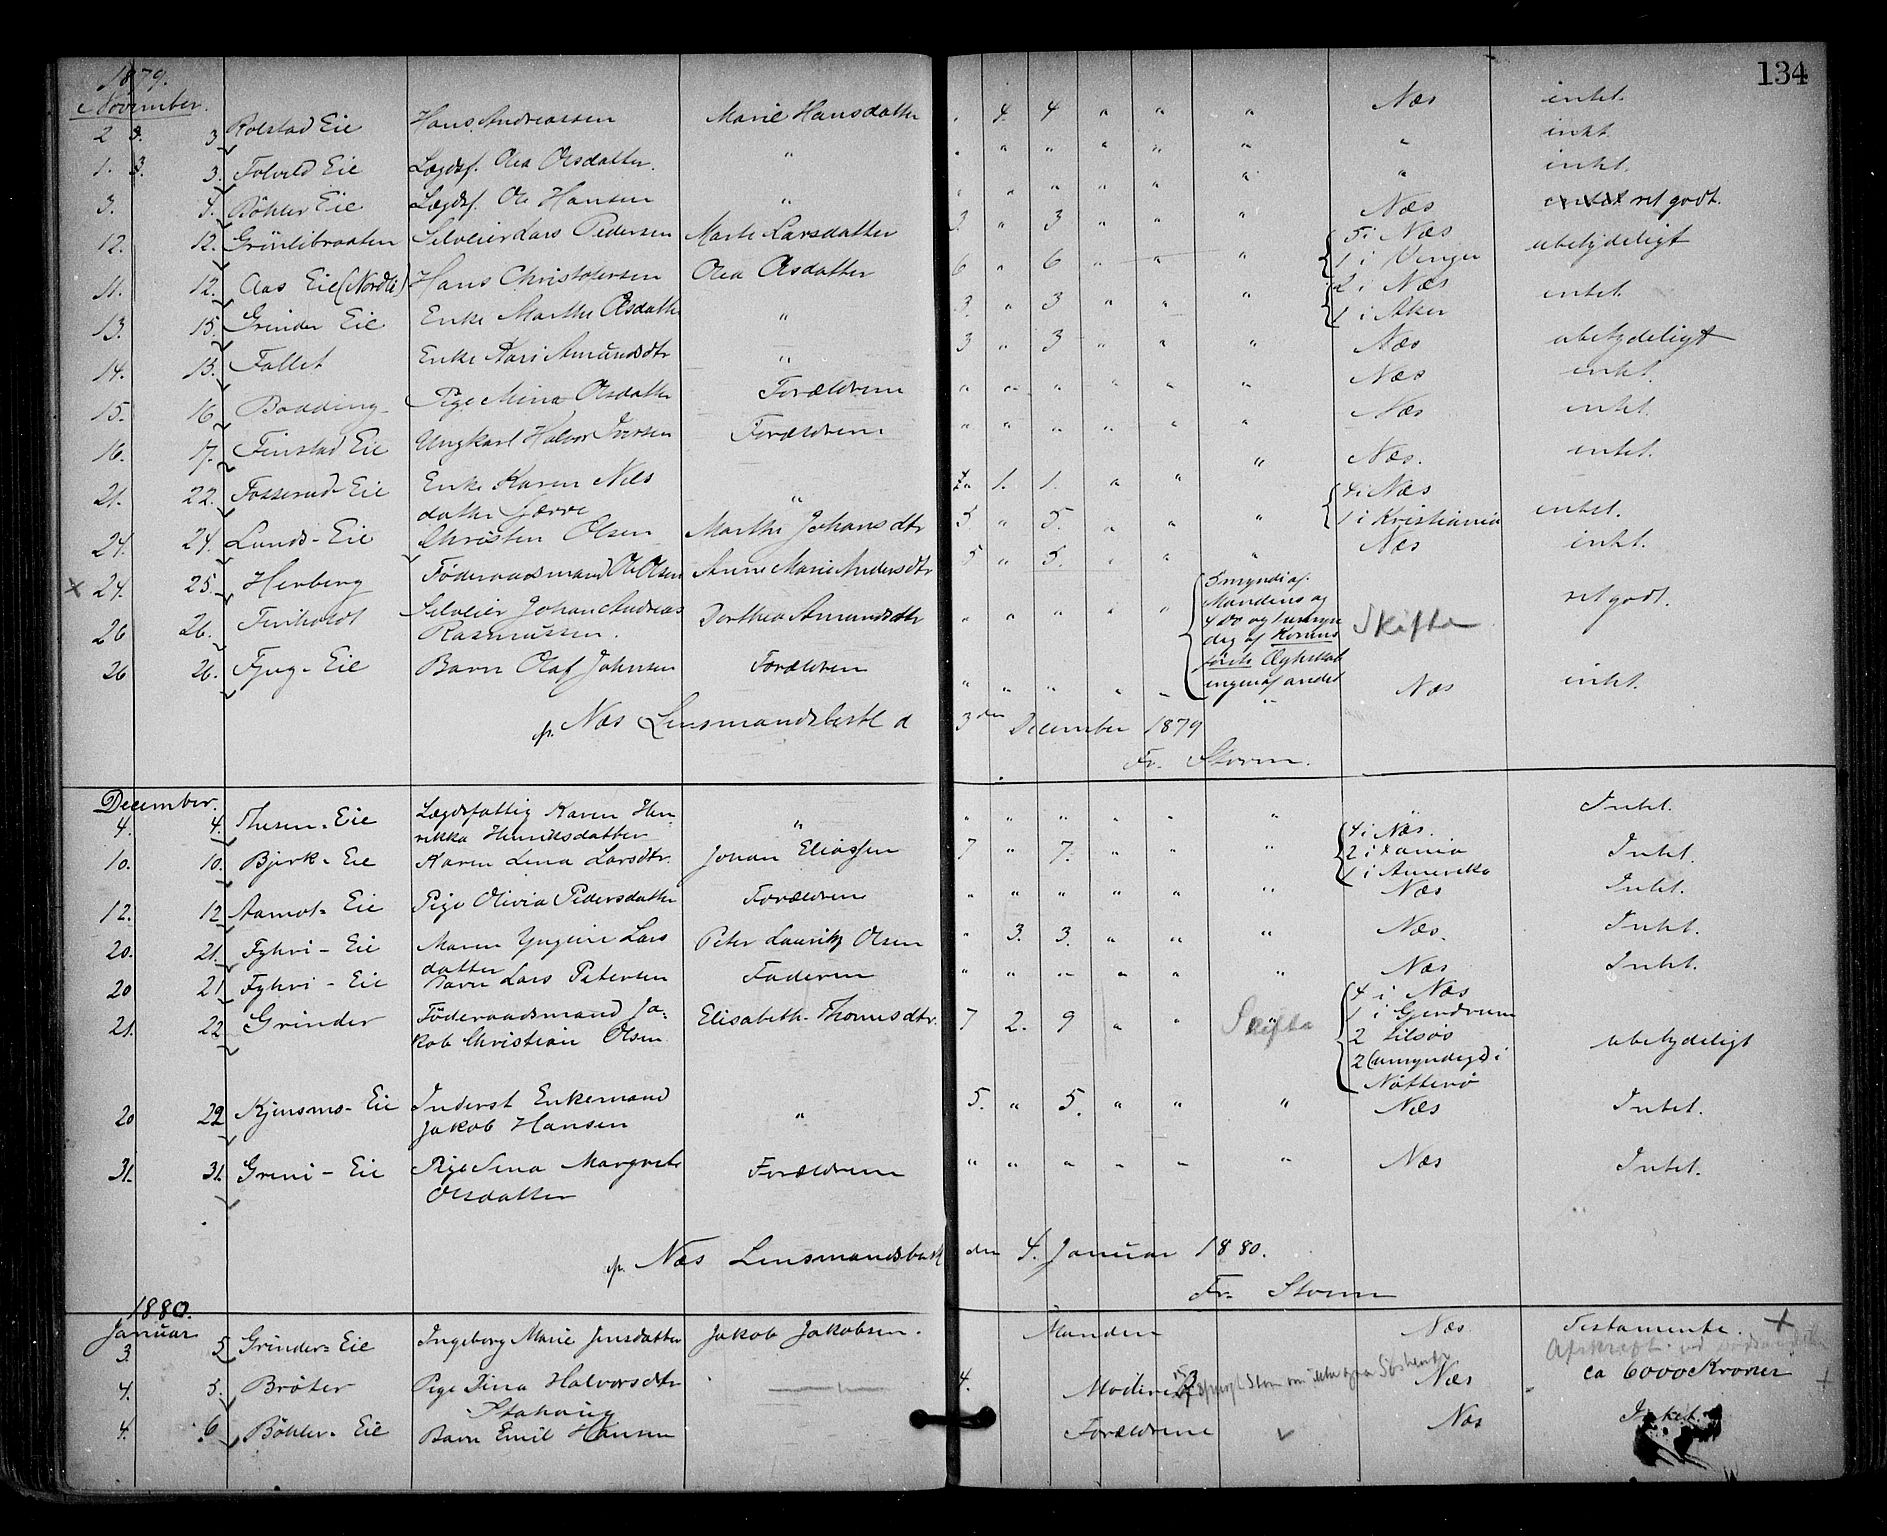 134
1879.
November.
2 3. 3 Rolstad Eie Hans Andreassen Marie Hansdatter " 4. 4 " " " Næs intet.
1. 3. 3. Folvild Eie Lægdsf. Olea Olsdatter. " " " " " " " " intet.
3. 4. Böhler Eie Lægdsf. Ole Hansen " " " " " " " " intet.
12. 12. Grönlibraaten Selveier Lars Pedersen Marte Larsdatter 3 " 3 " " " Næs ret godt.
11. 12. Aas Eie (Nordli) Hans Christofersen Olea Olsdatter 6 " 6 " " " 5 i Næs
1 i Vinger ubetydeligt
13. 15. Grinder Eie Enke Marthe Olsdatter " 3. " 3 " " " 2 i Næs
1 i Aker intet.
14. 15. Fallet Enke Kari Amundsdtr " 3 " 3 " " " Næs ubetydeligt
15. 16 Bodding Pige Mina Olsdatter Forældrene " " " " " " Næs intet.
16. 17. Finstad Eie Ungkarl Halvor Iversen Forældrene " " " " " " Næs intet.
21. 22. Fosserud Eie Enke Karen Nils
datter Gjerve " 1. 1. " " " Næs. intet.
24. 24. Lunds-Eie Christen Olsen Marthe Johansdtr 5. " 5. " " " 4 i Næs
1 i Kristiania intet.
x 24. 25. Herberg Föderaadsmand Ole Olsen Anne Marie Andersdtr 5 " 5. " " " Næs intet.
26 26. Finholdt Selveier Johan Andreas
Rasmussen. Dorthea Amundsdtr " " " " "
5 myndi af
Mandens og
4 do og 1 umyn
dig af Konens
förste Ægteskab
ingen af andet Skifte ret godt.
26 26. Fjug-Eie Barn Olaf Johnsen Forældren " " " " " " Næs intet.
p. Næs Lensmandsbestl d 3den December 1879
Fr. Storm.
December.
4. 4. Thusen-Eie Lægdsfattig Karen Hen-
rikka Henriksdatter " " " " " " " " Intet.
10. 10. Bjerk-Eie Karen Lina Larsdtr. Johan Eliassen 7 " 7. " " " 4 i Næs.
2 i Xania
1 i Amerika Intet.
12. 12 Aamot-Eie Pige Olivia Pedersdatter Forældrene " " " " " " Næs Intet.
20. 21. Fyhri-Eie Maren Lars
datter Peter Lauritz Olsen " 3. 3. " " " Næs. Intet.
20 21 Fyhri-Eie Barn Lars Petersen Faderen " " " " " " Næs Intet.
21. 22 Grinder Föderaadsmand Ja-
kob Christian Olsen Elisabeth Thomsdtr. 7 2. 9 " " Skifte
4 i Næs
1 i Gjerdrum
2 Lilsøs
2 (umyndige) i
Nøtterø ubetydeligt
20 22 Kjensmo-Eie Inderst Enkemand
Jakob Hansen " 5. " 5. " " " Næs Intet.
31. 31. Greni-Eie Pige Lina Margrete
Olsdatter Forældrene " " " " " " Næs Intet.
p. Næs Lensmandsbestl den 4. Januar 1880.
Fr. Storm
1880.
Januar
3. 5 Grinder-Eie Ingeborg Marie Jensdatter Jakob Jakobsen. Manden Næs Testamente. +
4. 5. Bröter Pige Dina Halvorsdtr 4. Moderen Næs ca 6000 Kroner +
4. 6 Böhler-Eie Barn Emil Hansen Forældrene Næs Intet.